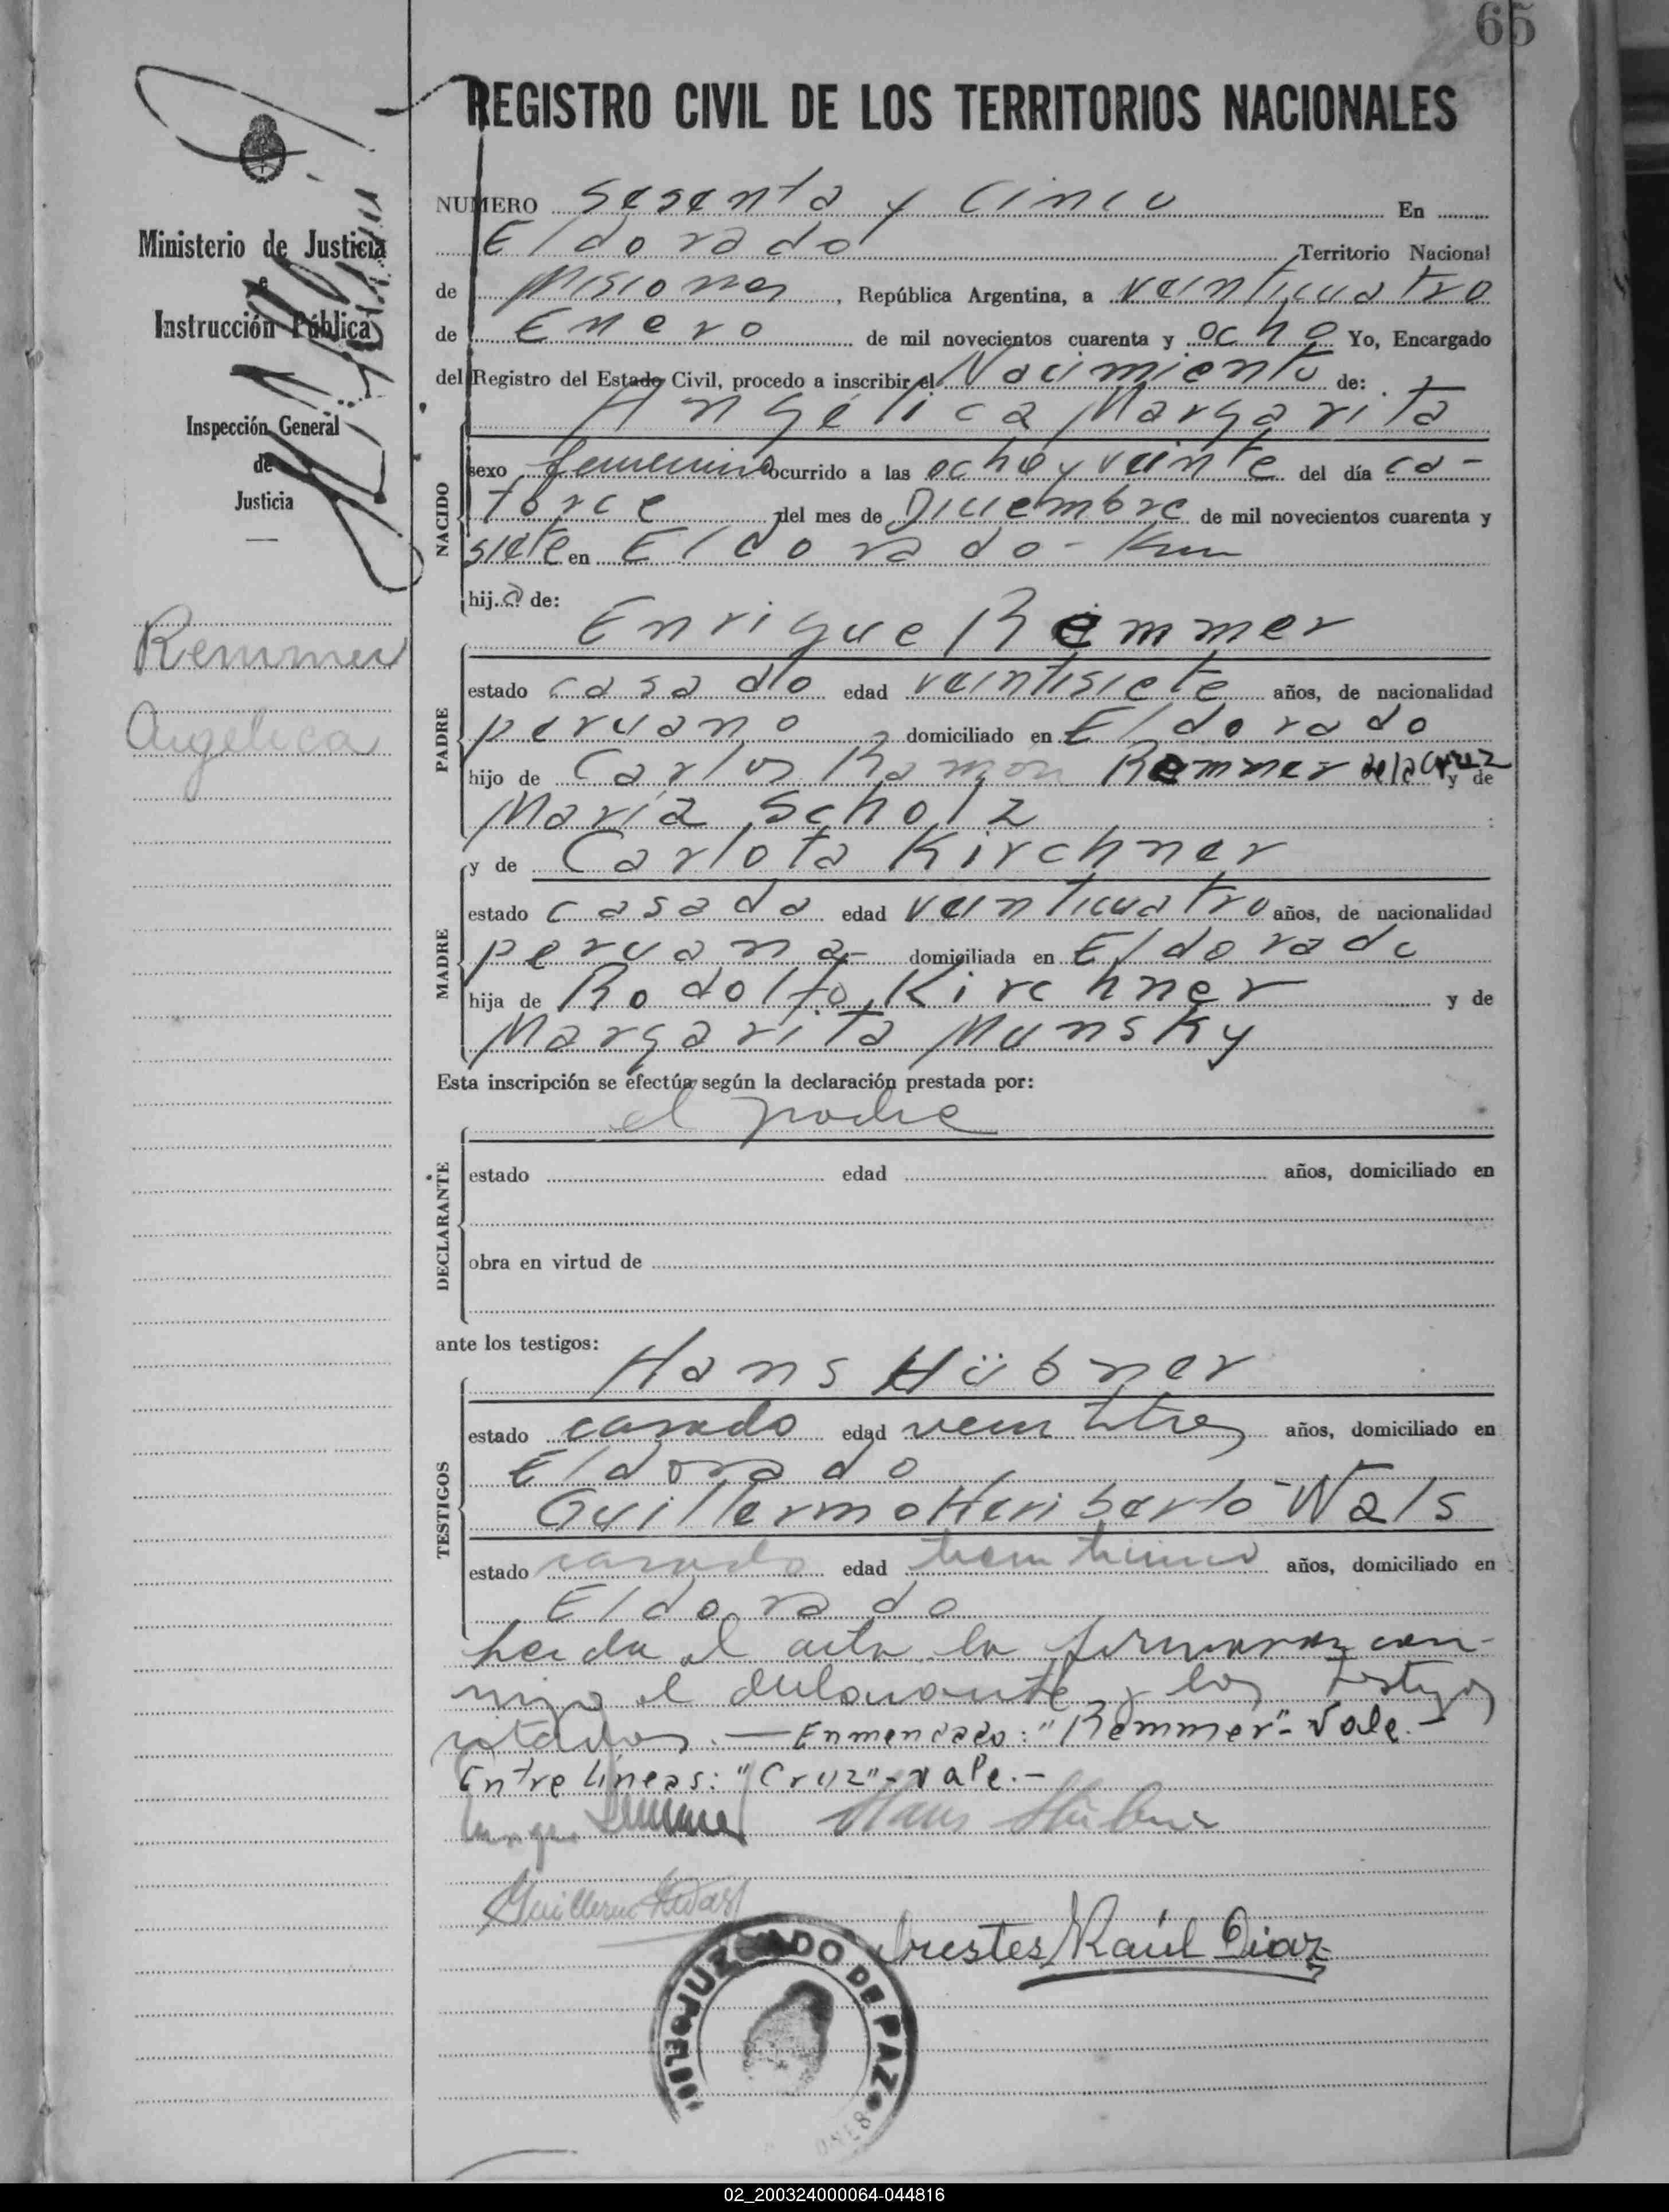 65
REGISTRO CIVIL DE LOS TERRITORIOS NACIONALES
Ministerio de Justicia
e
Instrucción Pública
Inspección General
de
Justicia
Remmer
Angélica
NUMERO Sesenta y Cinco En
Eldorado Territorio Nacional
de Misiones, República Argentina, a veinticuatro
de Enero de mil novecientos cuarenta y ocho Yo, Encargado
del Registro del Estado Civil, procedo a inscribir el Nacimiento de:
Angélica Margarita
NACIDO
sexo femenino ocurrido a las ocho y veinte del día ca-
torce del mes de Diciembre de mil novecientos cuarenta y
siete en Eldorado - Km
hija de:
Enrique Remmer
PADRE
estado casado edad veintisiete años, de nacionalidad
peruano domiciliado en Eldorado
hijo de Carlos Ramón Remmer de la Cruz y de
María Scholz
y de Carlota Kirchner
MADRE
estado casada edad veinticuatro años, de nacionalidad
peruana- domiciliada en Eldorado
hija de Rodolfo Kirchner y de
Margarita Munsky
Esta inscripción se efectúa según la declaración prestada por:
el padre
DECLARANTE
estado edad años, domiciliado en
obra en virtud de
ante los testigos:
Hans Hübner
TESTIGOS
estado casado edad veintitres años, domiciliado en
Eldorado
Guillermo Heriberto Wals
estado casado edad años, domiciliado en
Eldorado
leida el acta la firmaron con-
migo el declarante y los testigos
citados. — Enmendado: "Remmer"- Vale.-
Entre líneas: "Cruz"- vale.-
Enrique Remmer Hans Hübner
Guillermo
Orestes Raúl Diaz
JUZGADO DE PAZ
02_200324000064-044816